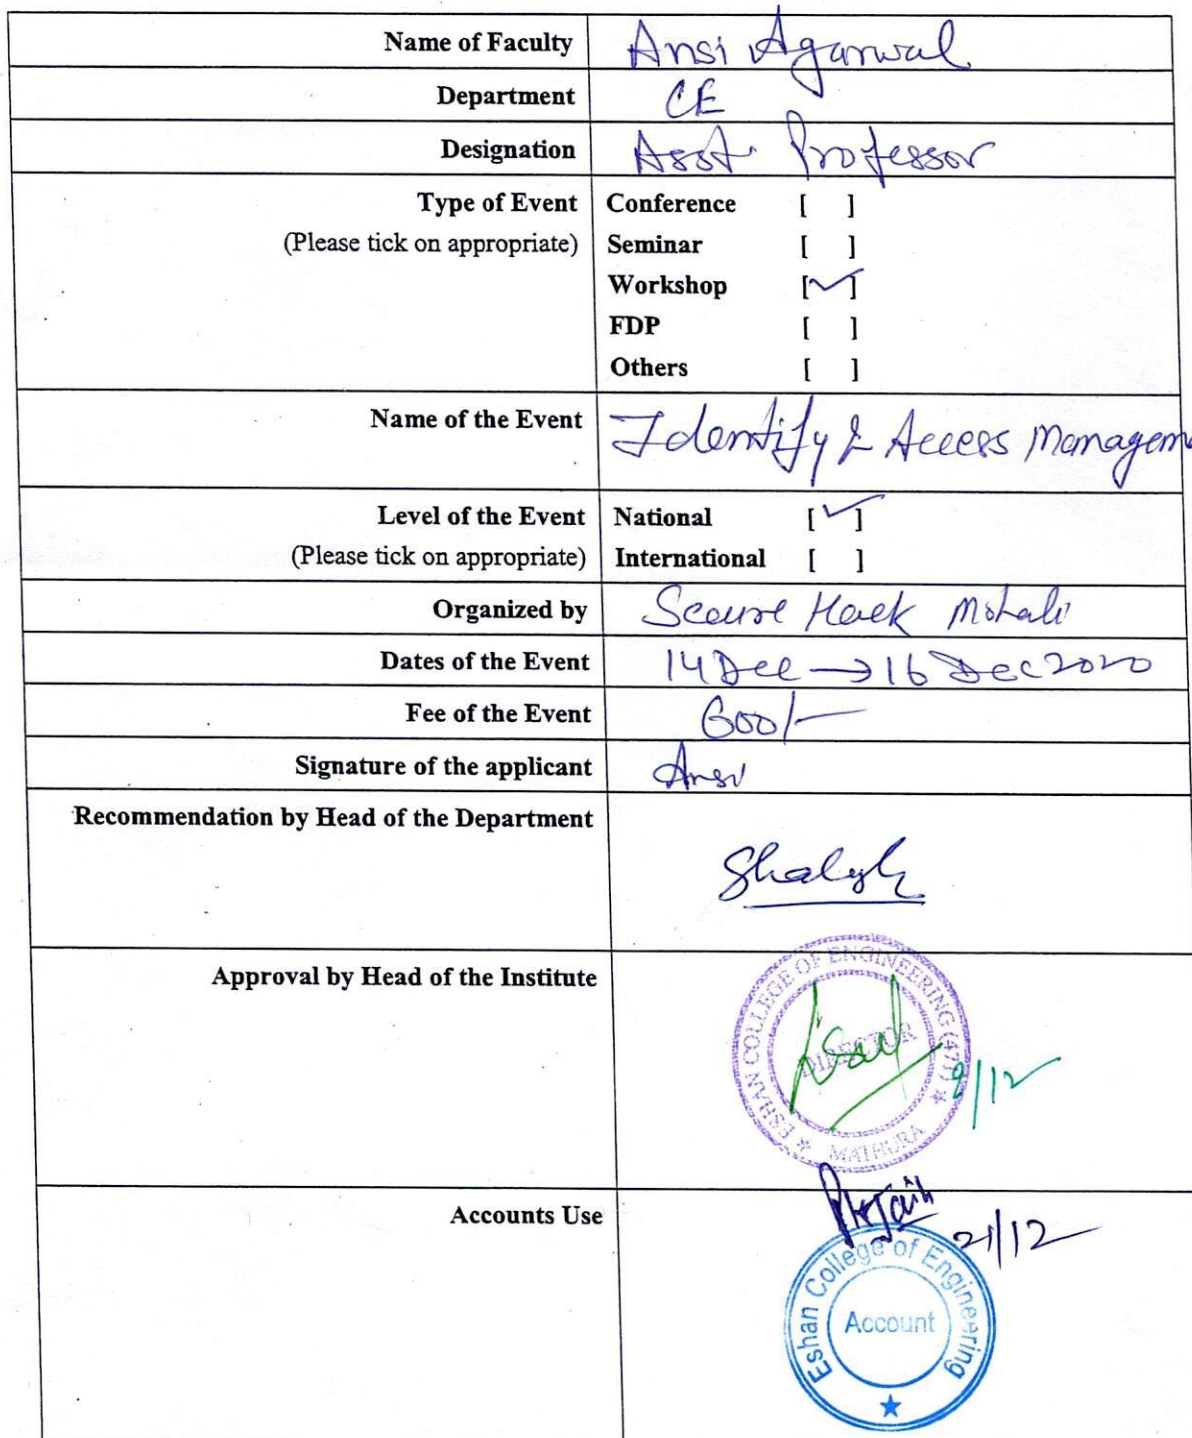 Name of Faculty Ansi Agarwal
Department CE
Designation Asst. Professor
Type of Event Conference [ ]
(Please tick on appropriate) Seminar [ ]
Workshop [✓]
FDP [ ]
Others [ ]
Name of the Event Identify & Access Managem
Level of the Event National [✓]
(Please tick on appropriate) International [ ]
Organized by Secure Hack Mohali
Dates of the Event 14 Dec → 16 Dec 2020
Fee of the Event 600/-
Signature of the applicant Ansi
Recommendation by Head of the Department
Approval by Head of the Institute
ESHAN COLLEGE OF ENGINEERING (477) ★ MATHURA ★
DIRECTOR
/12
Accounts Use
21/12
Eshan College of Engineering
Account
★